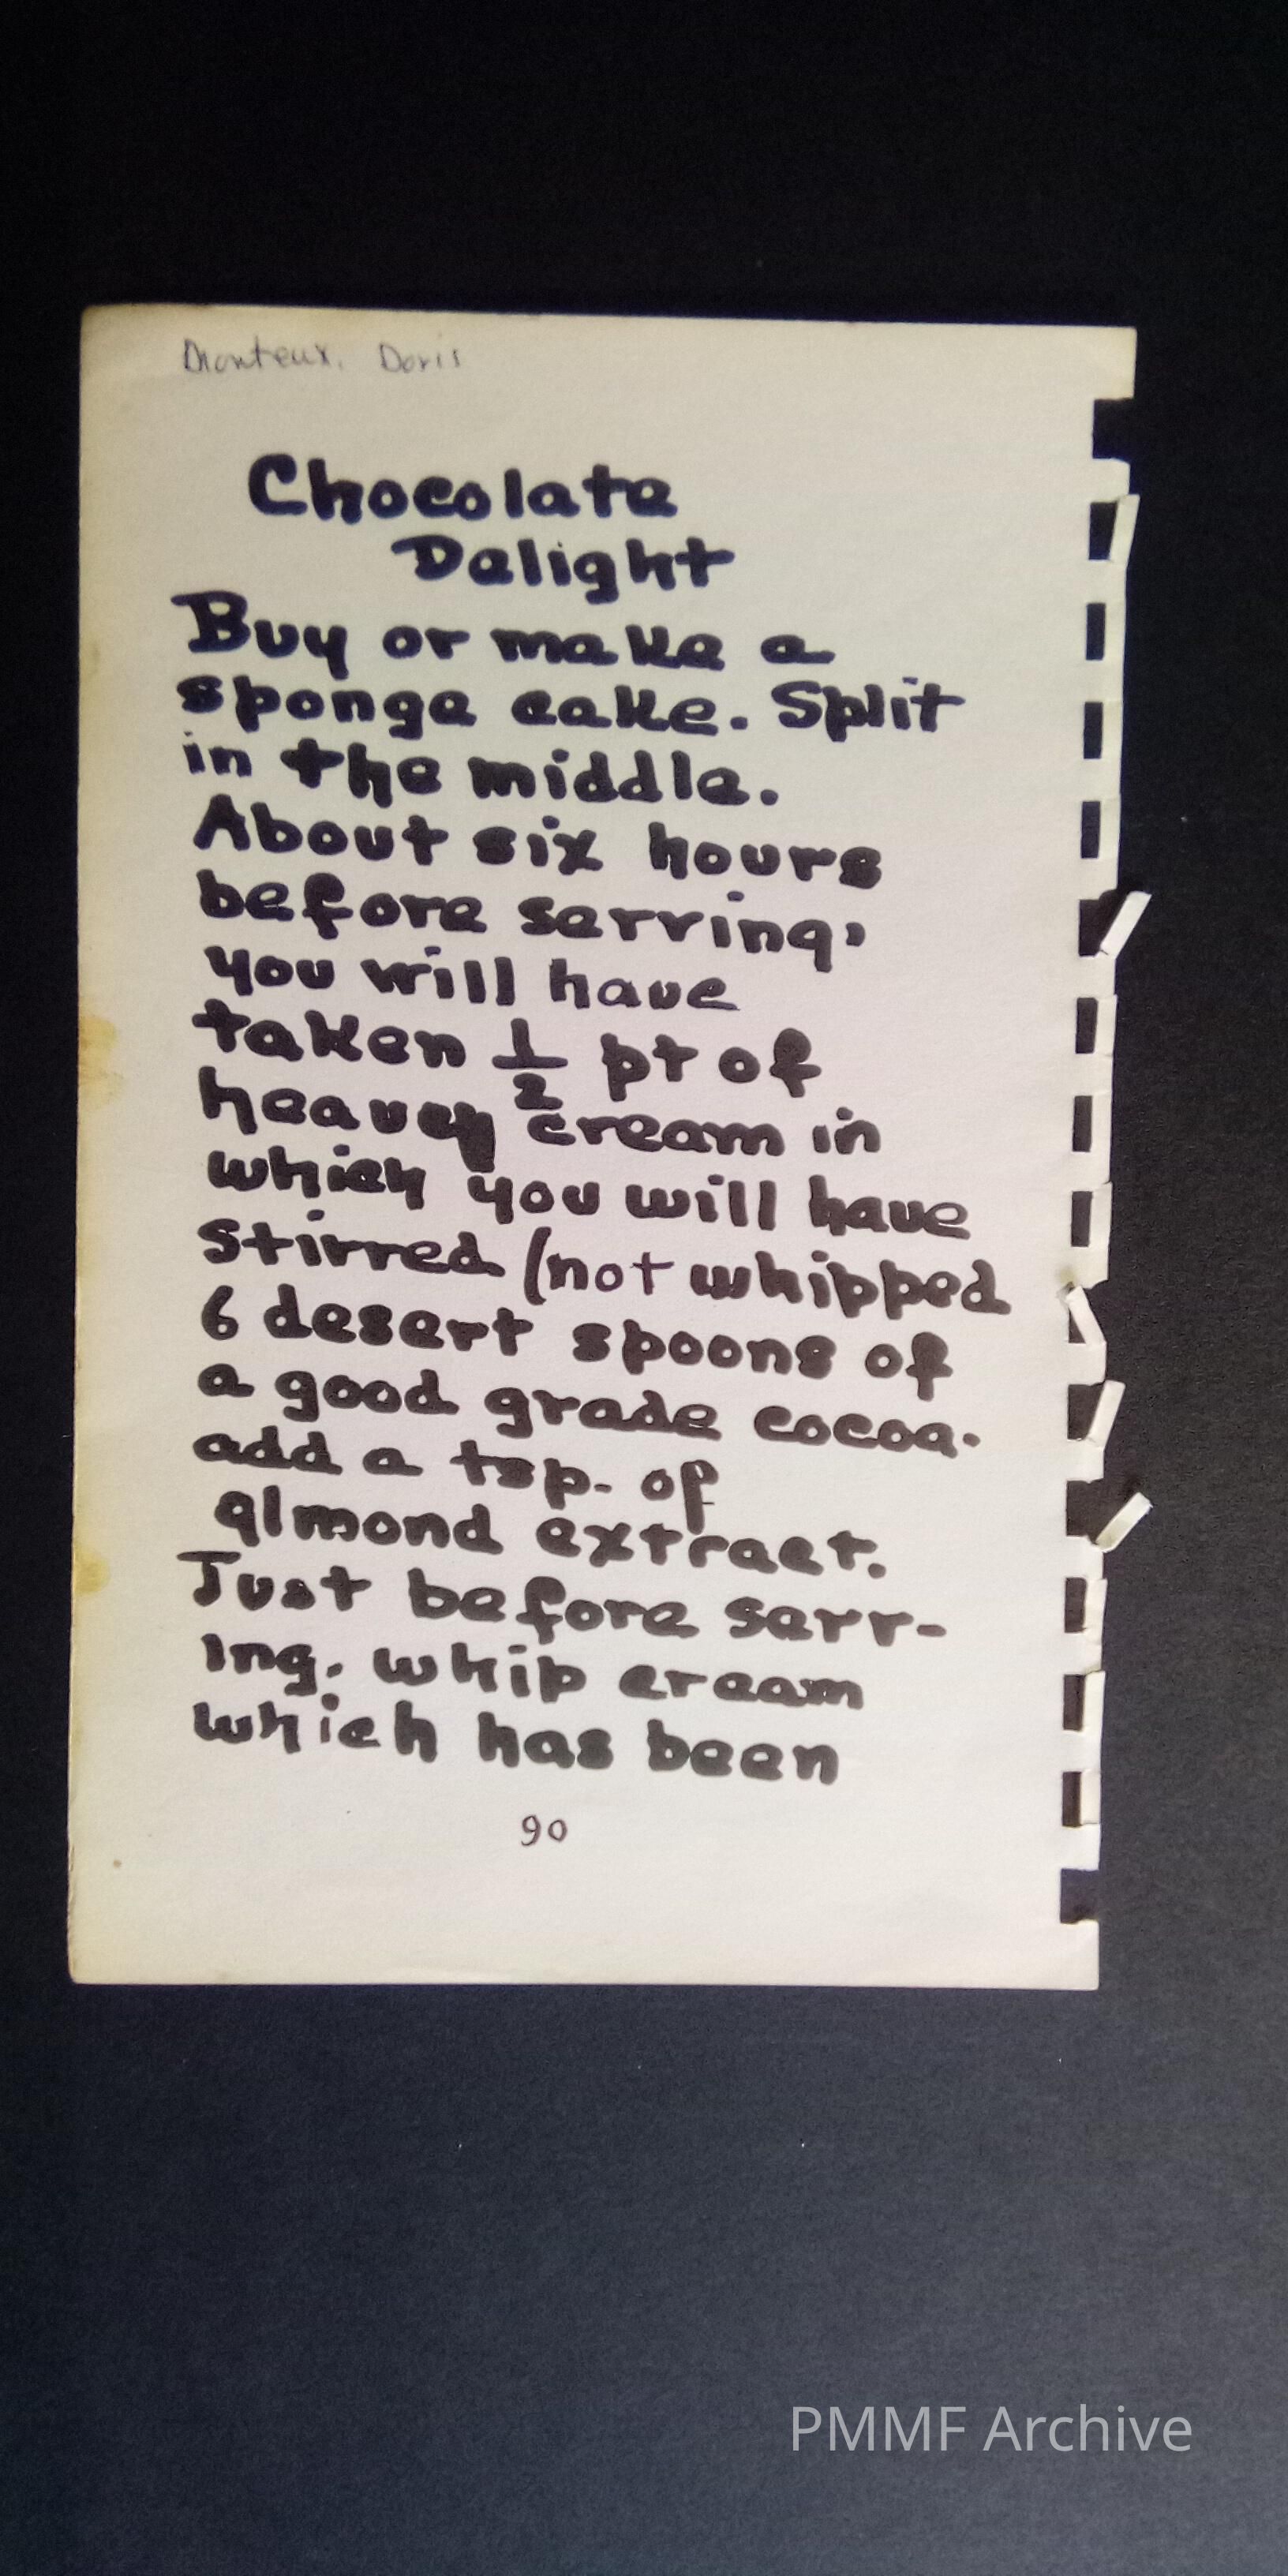 Monteux, Doris
Chocolate
Delight
Buy or make a
sponge cake. Split
in the middle.
About six hours
before serving,
you will have
taken 1/2 pt of
heavey cream in
which you will have
stirred (not whipped
6 desert spoons of
a good grade cocoa.
add a tsp. of
almond extract.
Just before serv-
ing. whip cream
which has been
90
PMMF Archive